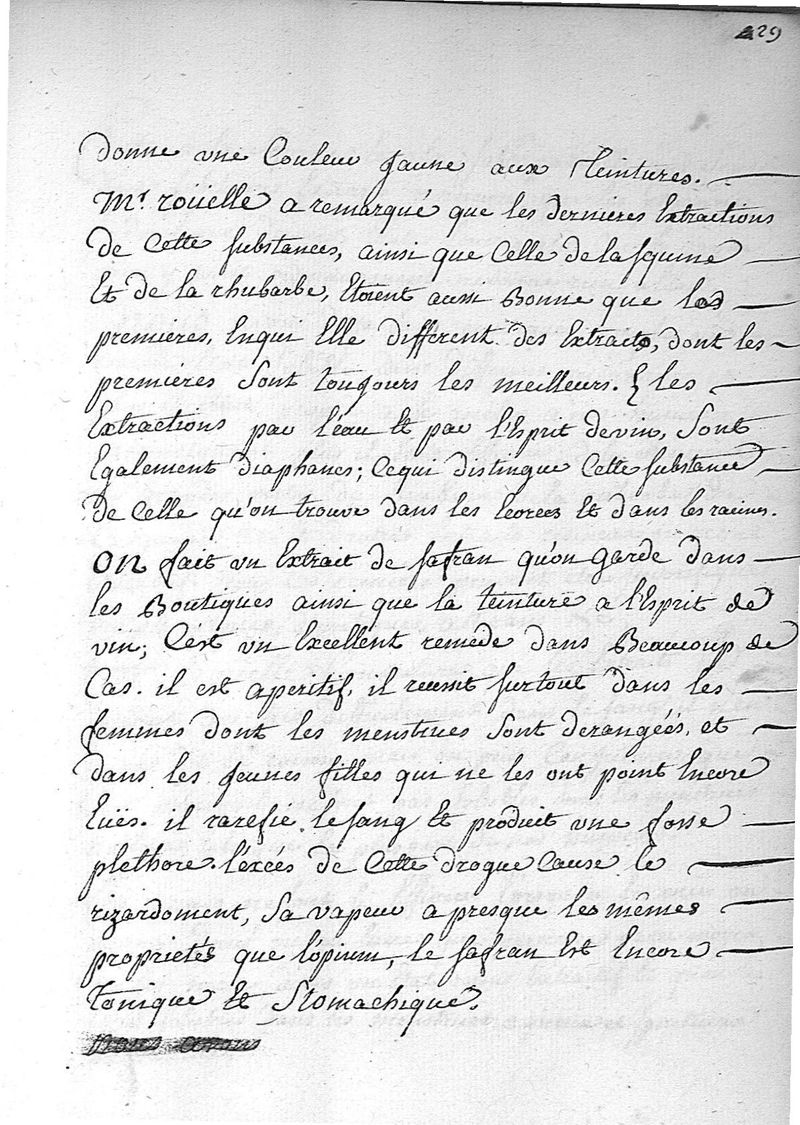 29
donne une Couleur jaune aux Teintures.
Mr. roüelle a remarqué que les dernieres Extractions
de Cette substances, ainsi que Celle de la squine
Et de la rhubarbe, Etoient aussi Bonne que les
premieres, Enqui Elle different des Extraits, dont les
premieres sont toujours les meilleurs. les
Extractions par l'eau et par l'Esprit devin, sont
Egalement diaphanes; Cequi distingue Cette substance
de Celle qu'on trouve dans les Ecorces Et dans les racines.
On fait un Extrait de safran qu'on garde dans
les Boutiques ainsi que la teinture a l'Esprit de
vin; C'est un Excellent remede dans Beaucoup de
Cas. il est aperitif, il reussit surtout dans les
femmes dont les menstrues sont derangéés, et
dans les jeunes filles qui ne les ont point Encore
Euës. il rarefie le sang Et produit une fosse
plethore. l'éxcés de Cette drogue Cause le
rizardoment, sa vapeur a presque les mêmes
proprietés que l'opium, le safran Est Encore
tonique Et Stomachique.
nous avons